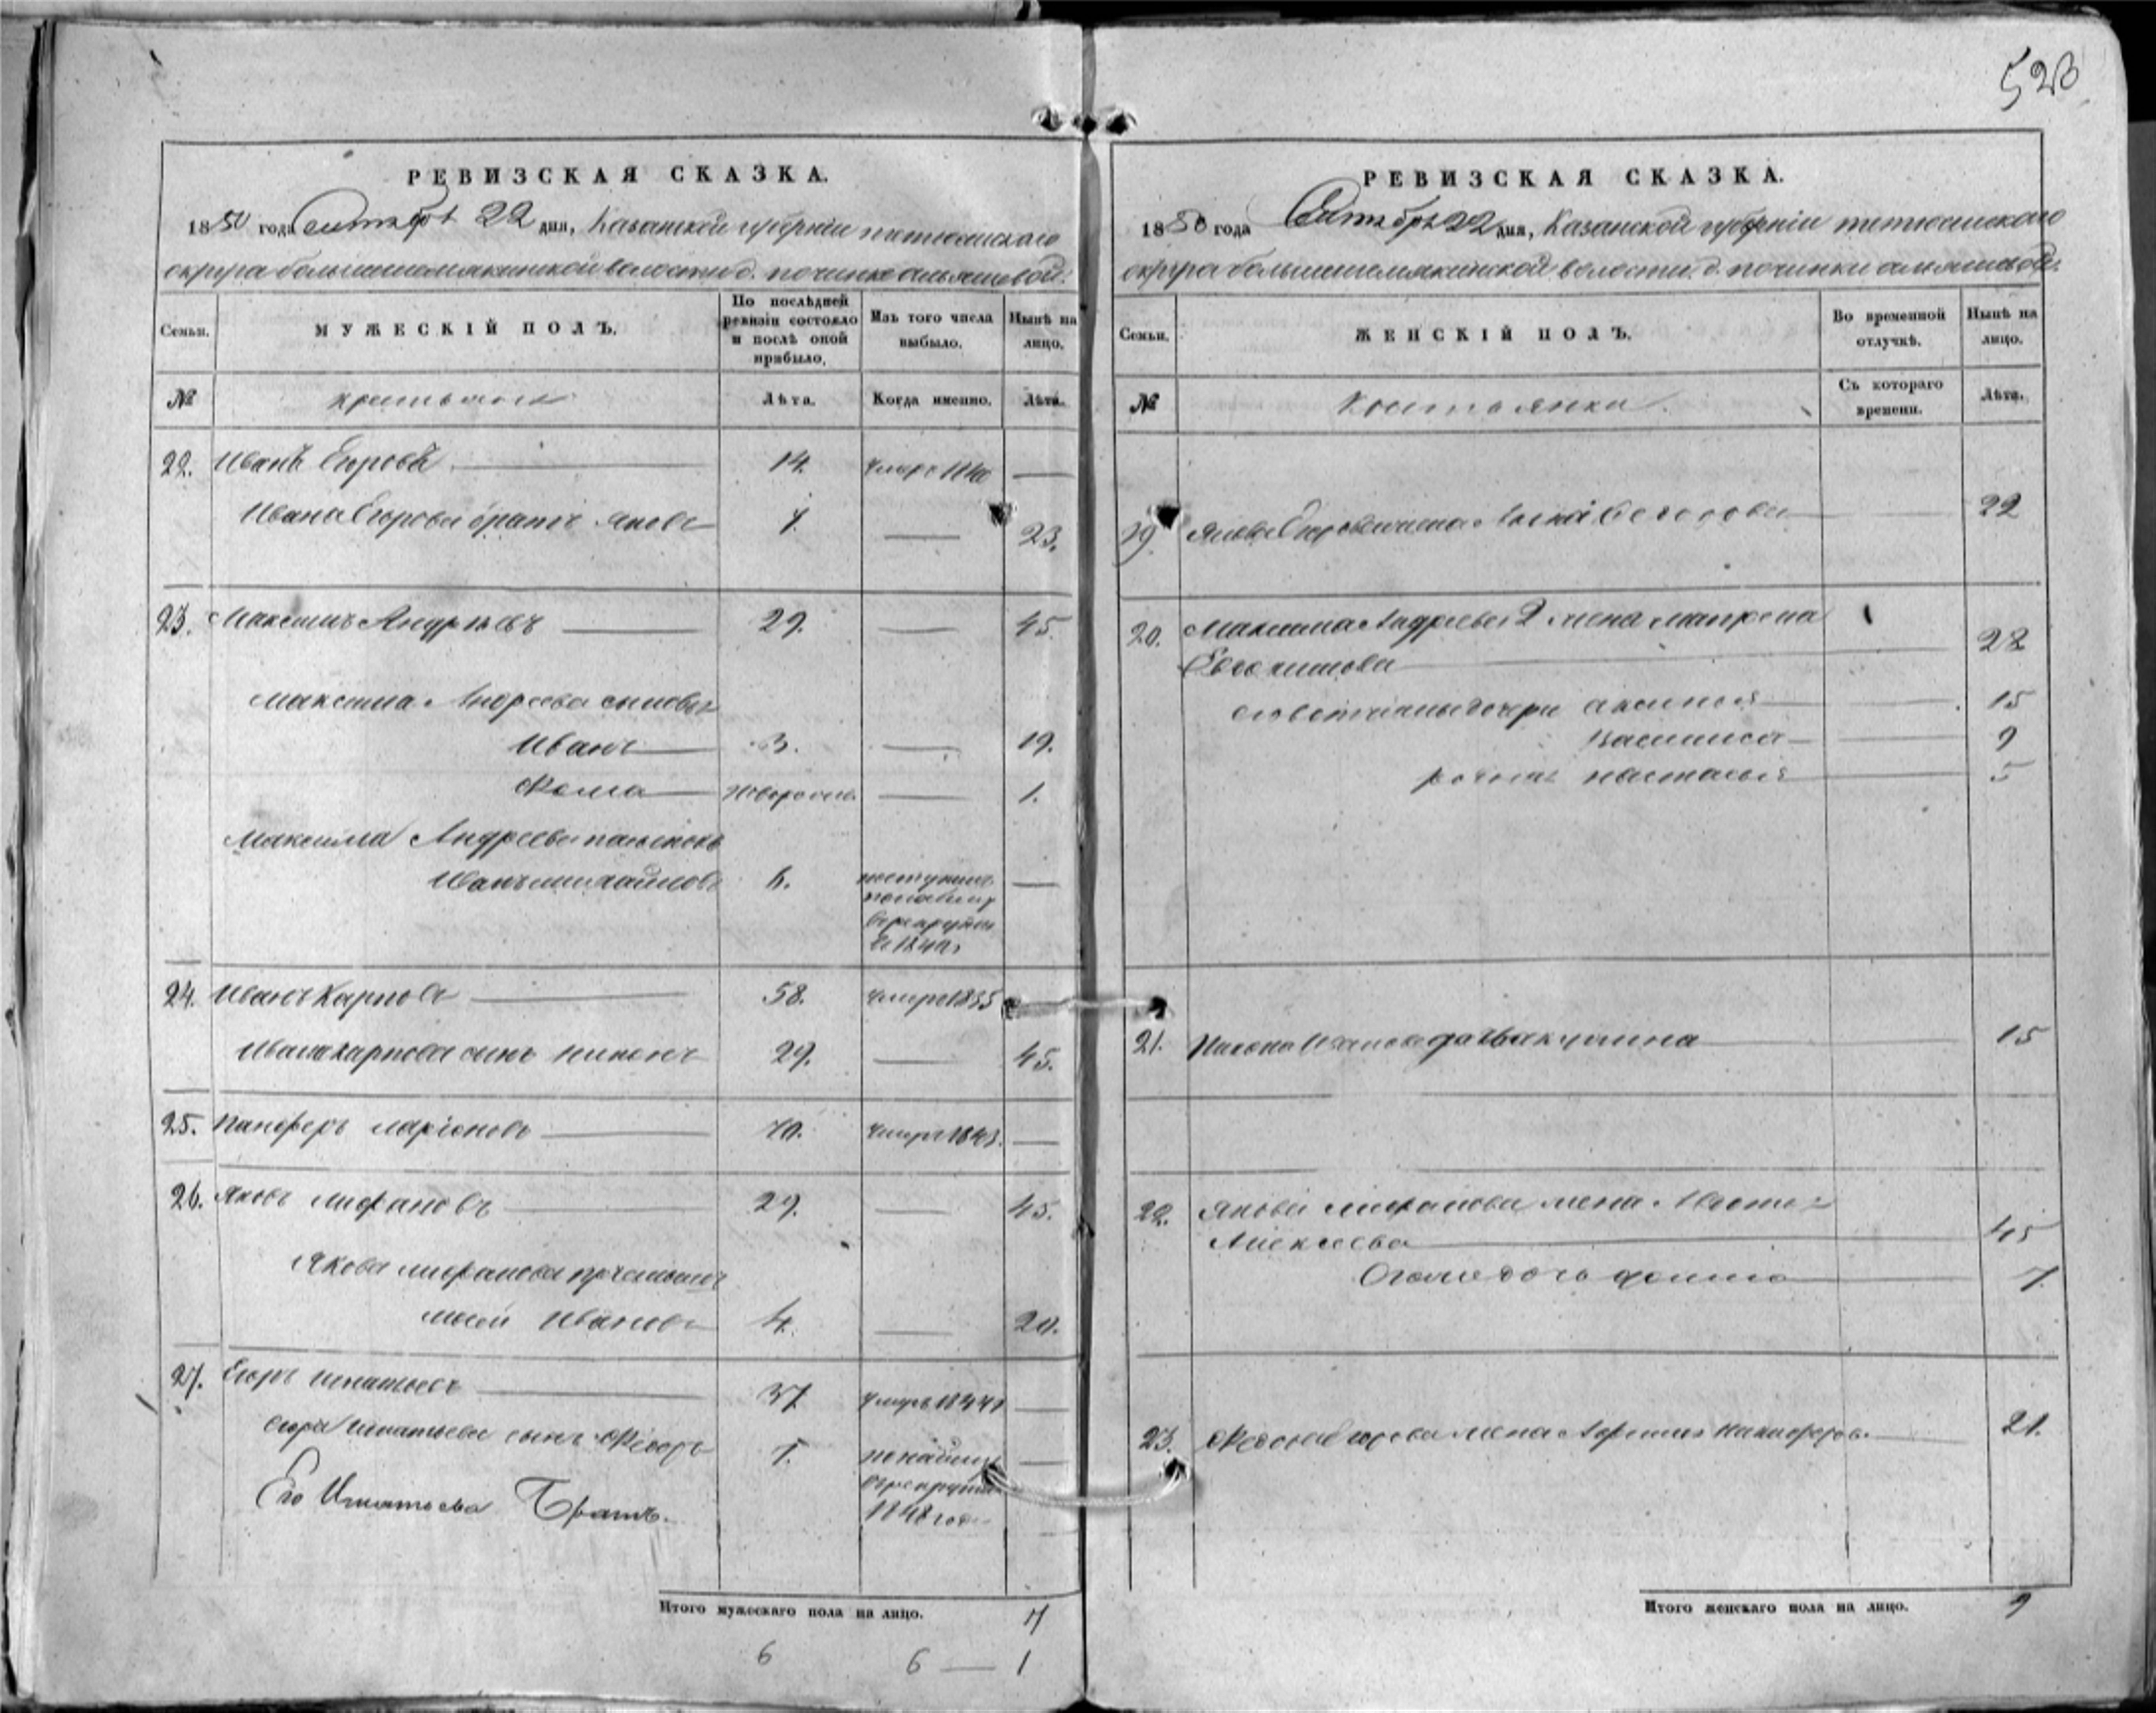 523
РЕВИЗСКАЯ СКАЗКА.
1850 года Октября 22 дня, Казанской губернии тетюшского
округа большешемякинской волости д. починка альяшевой.
Семьи.
МУЖЕСКІЙ ПОЛЪ.
По послѣдней ревизіи состояло и послѣ оной прибыло.
Изъ того числа выбыло.
Нынѣ на лицо.
№
крестьяне
Лѣта.
Когда именно.
Лѣта.
22. Иванъ Егоровъ 14. умеръ 1840 —
Ивана Егорова братъ Яковъ 7. — 23.
23. Максимъ Андреевъ 29. — 45.
Максима Андреева сыновья
Иванъ 3. — 19.
Фома новорожд. — 1.
Максима Андреева пасынокъ
Иванъ михайловъ 6. поступилъ
—
в рекруты
в 1840
24. Иванъ Карповъ 58. умеръ 1835
Ивана карпова сынъ никонъ 29. — 45.
25. Панферъ ларіоновъ 70. умеръ 1843. —
26. Яковъ миѳановъ 29. — 45.
Якова миѳанова
Иванов 4. — 20.
27. Егоръ игнатьевъ 37 умеръ 1844 —
Егора Игнатьева сынъ Федоръ 1. —
в рекруты
1848 года
Его Игнатьева Братъ.
Итого мужескаго пола на лицо. 7
6 6 — 1
РЕВИЗСКАЯ СКАЗКА.
1850 года Октября 22 дня, Казанской губерніи тетюшского
округа большешемякинской волости д. починки альяшевой.
Семьи.
ЖЕНСКІЙ ПОЛЪ.
Во временной отлучкѣ.
Нынѣ на лицо.
№
Крестьянки.
Съ котораго времени.
Лѣта.
19. Якова Егорова жена 22
20. Максима Андреева 2 жена матрена
Евдокимова 28
его дочери аксинья 15
Василиса 9
наталья 5
21. Никона Иванова дочь акулина 15
22. Якова миѳанова жена
Алексеева 45
дочь 7.
23. Федора Егорова жена Никифорова 21.
Итого женскаго пола на лицо. 9